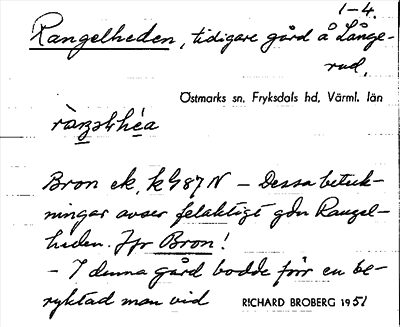 1-4.
Rangelheden, tidigare gård å Långe-
rud.
Östmarks sn, Fryksdals hd, Värml. län
Bron ek. k987N – Dessa beteck-
ningar avser felaktigt gdn Rangel-
heden. Jfr Bron!
– I denna gård bodde förr en be-
ryktad man vid RICHARD BROBERG 1951